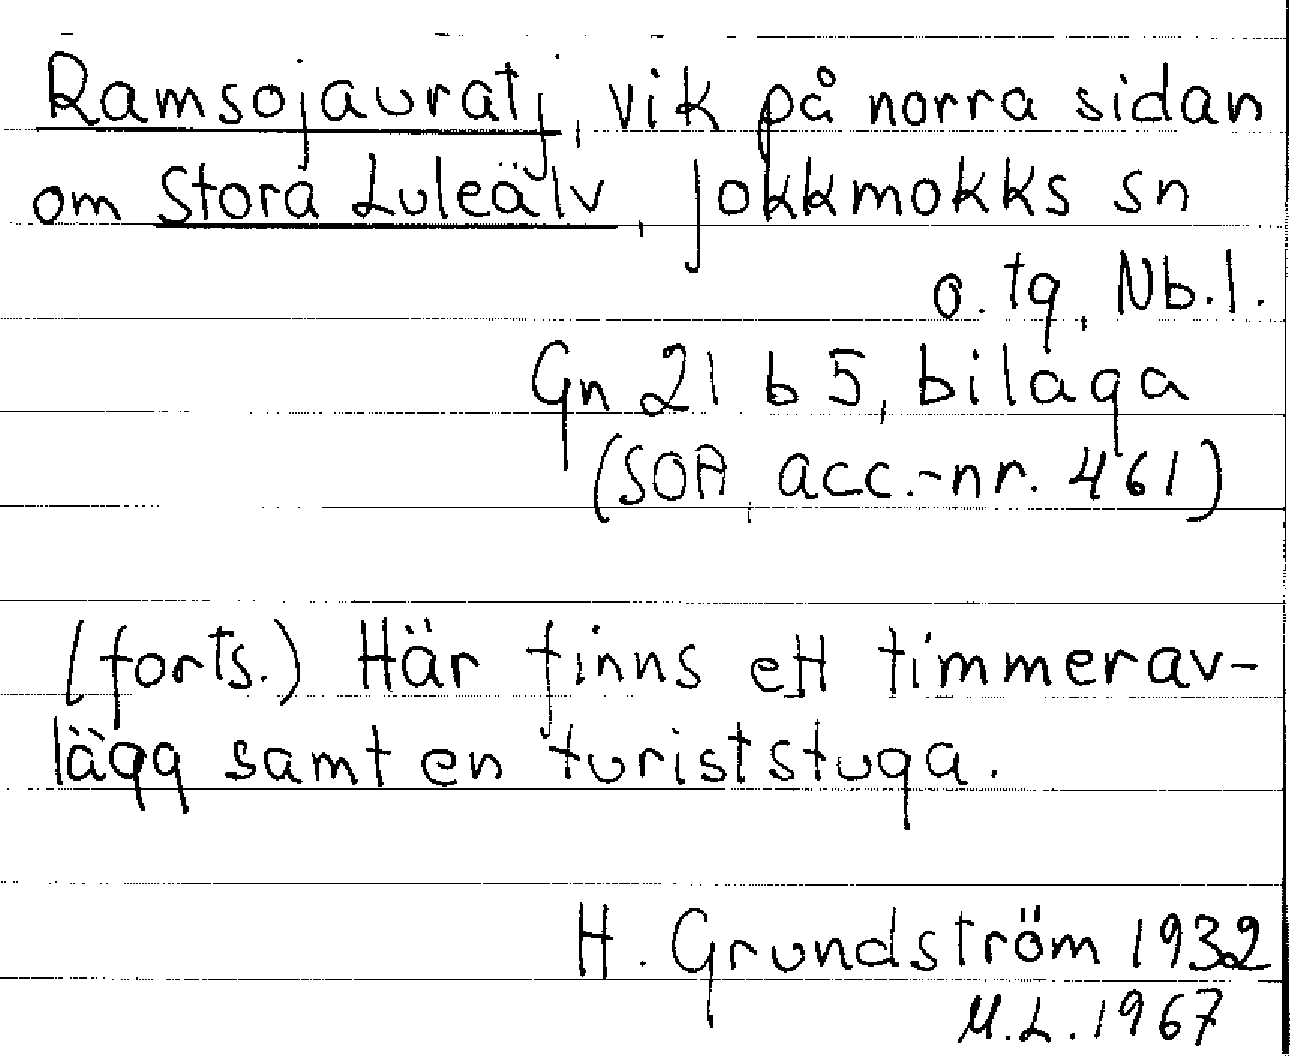 Ramsojauratj, vik på norra sidan
om Stora Luleälv, Jokkmokks sn
o. tg, Nb.l.
Gn 21 b 5, bilaga
(SOA, acc.-nr. 461)
(forts.) Här finns ett timmerav-
lägg samt en turiststuga.
H. Grundström 1932
M.L. 1967